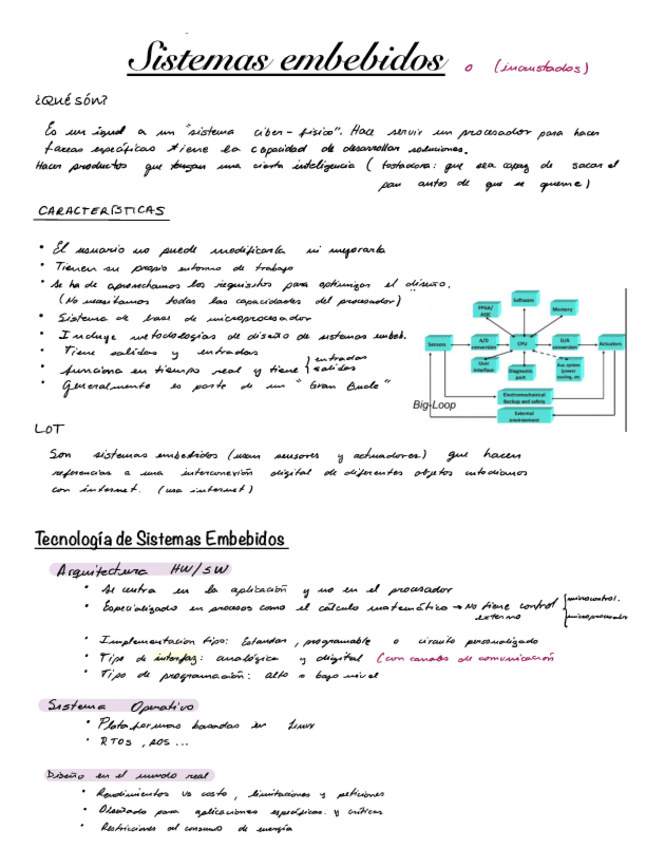 Sistemas embebidos o (incrustados)
¿Qué són?
Es un igual a un "sistema ciber-físico". Hace servir un procesador para hacer
tareas específicas tiene la capacidad de desarrollar soluciones.
Hacen productos que tengan una cierta inteligencia ( tostadora: que sea capaz de sacar el
pan antes de que se queme)
CARACTERÍSTICAS
• El usuario no puede modificarla ni mejorarla
• Tienen su propio entorno de trabajo
• Se ha de aprovecharnos los requisitos para optimizar el diseño.
(No necesitamos todas las capacidades del procesador)
• Sistema de base de microprocesador
• Incluye metodologías de diseño de sistemas embeb.
• Tiene salidas y entradas
• funciona en tiempo real y tiene } entradas
salidas
• Generalmente es parte de un "Gran Bucle"
Software
FPGA/
ASIC
Memory
Sensors
A/D
conversion
CPU
D/A
conversion
Actuators
User
Interface
Diagnostic
port
Aux system
(power
cooling, etc
Electromechanical
Backup and safety
External
environment
Big-Loop
LoT
Son sistemas embebidos (usan sensores y actuadores) que hacen
referencias a una interconexión digital de diferentes objetos cotidianos
con internet. (usa internet)
Tecnología de Sistemas Embebidos
Arquitectura HW/SW
• Se centra en la aplicación y no en el procesador
• Especializado en procesos como el cálculo matemático → No tiene control { microcontrol.
externo microprocesador
• Implementacion tipo: Estandar, programable o circuito personalizado
• Tipo de interfaz: analógica y digital (con canales de comunicación
• Tipo de programación: alto o bajo nivel
Sistema Operativo
• Plataformas basadas en Linux
• RTOS, ROS ...
Diseño en el mundo real
• Rendimientos vs costo, limitaciones y peticiones
• Diseñado para aplicaciones específicas y críticas
• Restricciones al consumo de energía